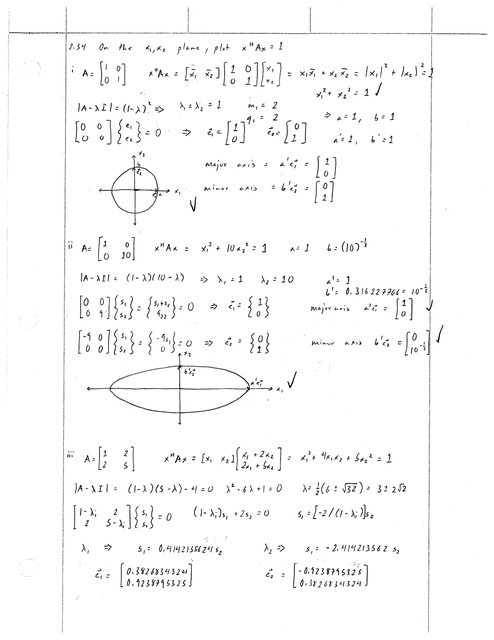 2.34 On the x₁, x₂ plane, plot xᴴAx = 1
i A = [1 0; 0 1] xᴴAx = [x̄₁ x̄₂][1 0; 0 1][x₁; x₂] = x₁x̄₁ + x₂x̄₂ = |x₁|² + |x₂|² = 1
x₁² + x₂² = 1 ✓
|A-λI| = (1-λ)² ⇒ λ₁ = λ₂ = 1 m₁ = 2
q₁ = 2 ⇒ a = 1, b = 1
[0 0; 0 0]{e₁; e₂} = 0 ⇒ e⃗₁ = [1; 0] e⃗₂ = [0; 1] a' = 1, b' = 1
major axis = a'e⃗₁ = [1; 0]
minor axis = b'e⃗₂ = [0; 1]
x₂
b
a x₁
✓
ii A = [1 0; 0 10] xᴴAx = x₁² + 10x₂² = 1 a = 1 b = (10)^-½
|A-λI| = (1-λ)(10-λ) ⇒ λ₁ = 1 λ₂ = 10 a' = 1
b' = 0.316227766 = 10^-½
[0 0; 0 9]{s₁; s₂} = {s₁+s₂; 9s₂} = 0 ⇒ e⃗₁ = {1; 0} major axis a'e⃗₁ = [1; 0] ✓
[-9 0; 0 0]{s₁; s₂} = {-9s₁; 0} = 0 ⇒ e⃗₂ = {0; 1} minor axis b'e⃗₂ = [0; 10^-½] ✓
x₂
b'e⃗₂
a'e⃗₁ x₁ ✓
iii A = [1 2; 2 5] xᴴAx = [x₁ x₂][x₁ + 2x₂; 2x₁ + 5x₂] = x₁² + 4x₁x₂ + 5x₂² = 1
|A-λI| = (1-λ)(5-λ) - 4 = 0 λ² - 6λ + 1 = 0 λ = ½(6 ± √32) = 3 ± 2√2
[1-λᵢ 2; 2 5-λᵢ]{s₁; s₂} = 0 (1-λᵢ)s₁ + 2s₂ = 0 s₁ = [-2/(1-λᵢ)]s₂
λ₁ ⇒ s₁ = 0.4142135624 s₂ λ₂ ⇒ s₁ = -2.414213562 s₂
e⃗₁ = [0.3826834324; 0.9238795325] e⃗₂ = [-0.9238795325; 0.3826834324]